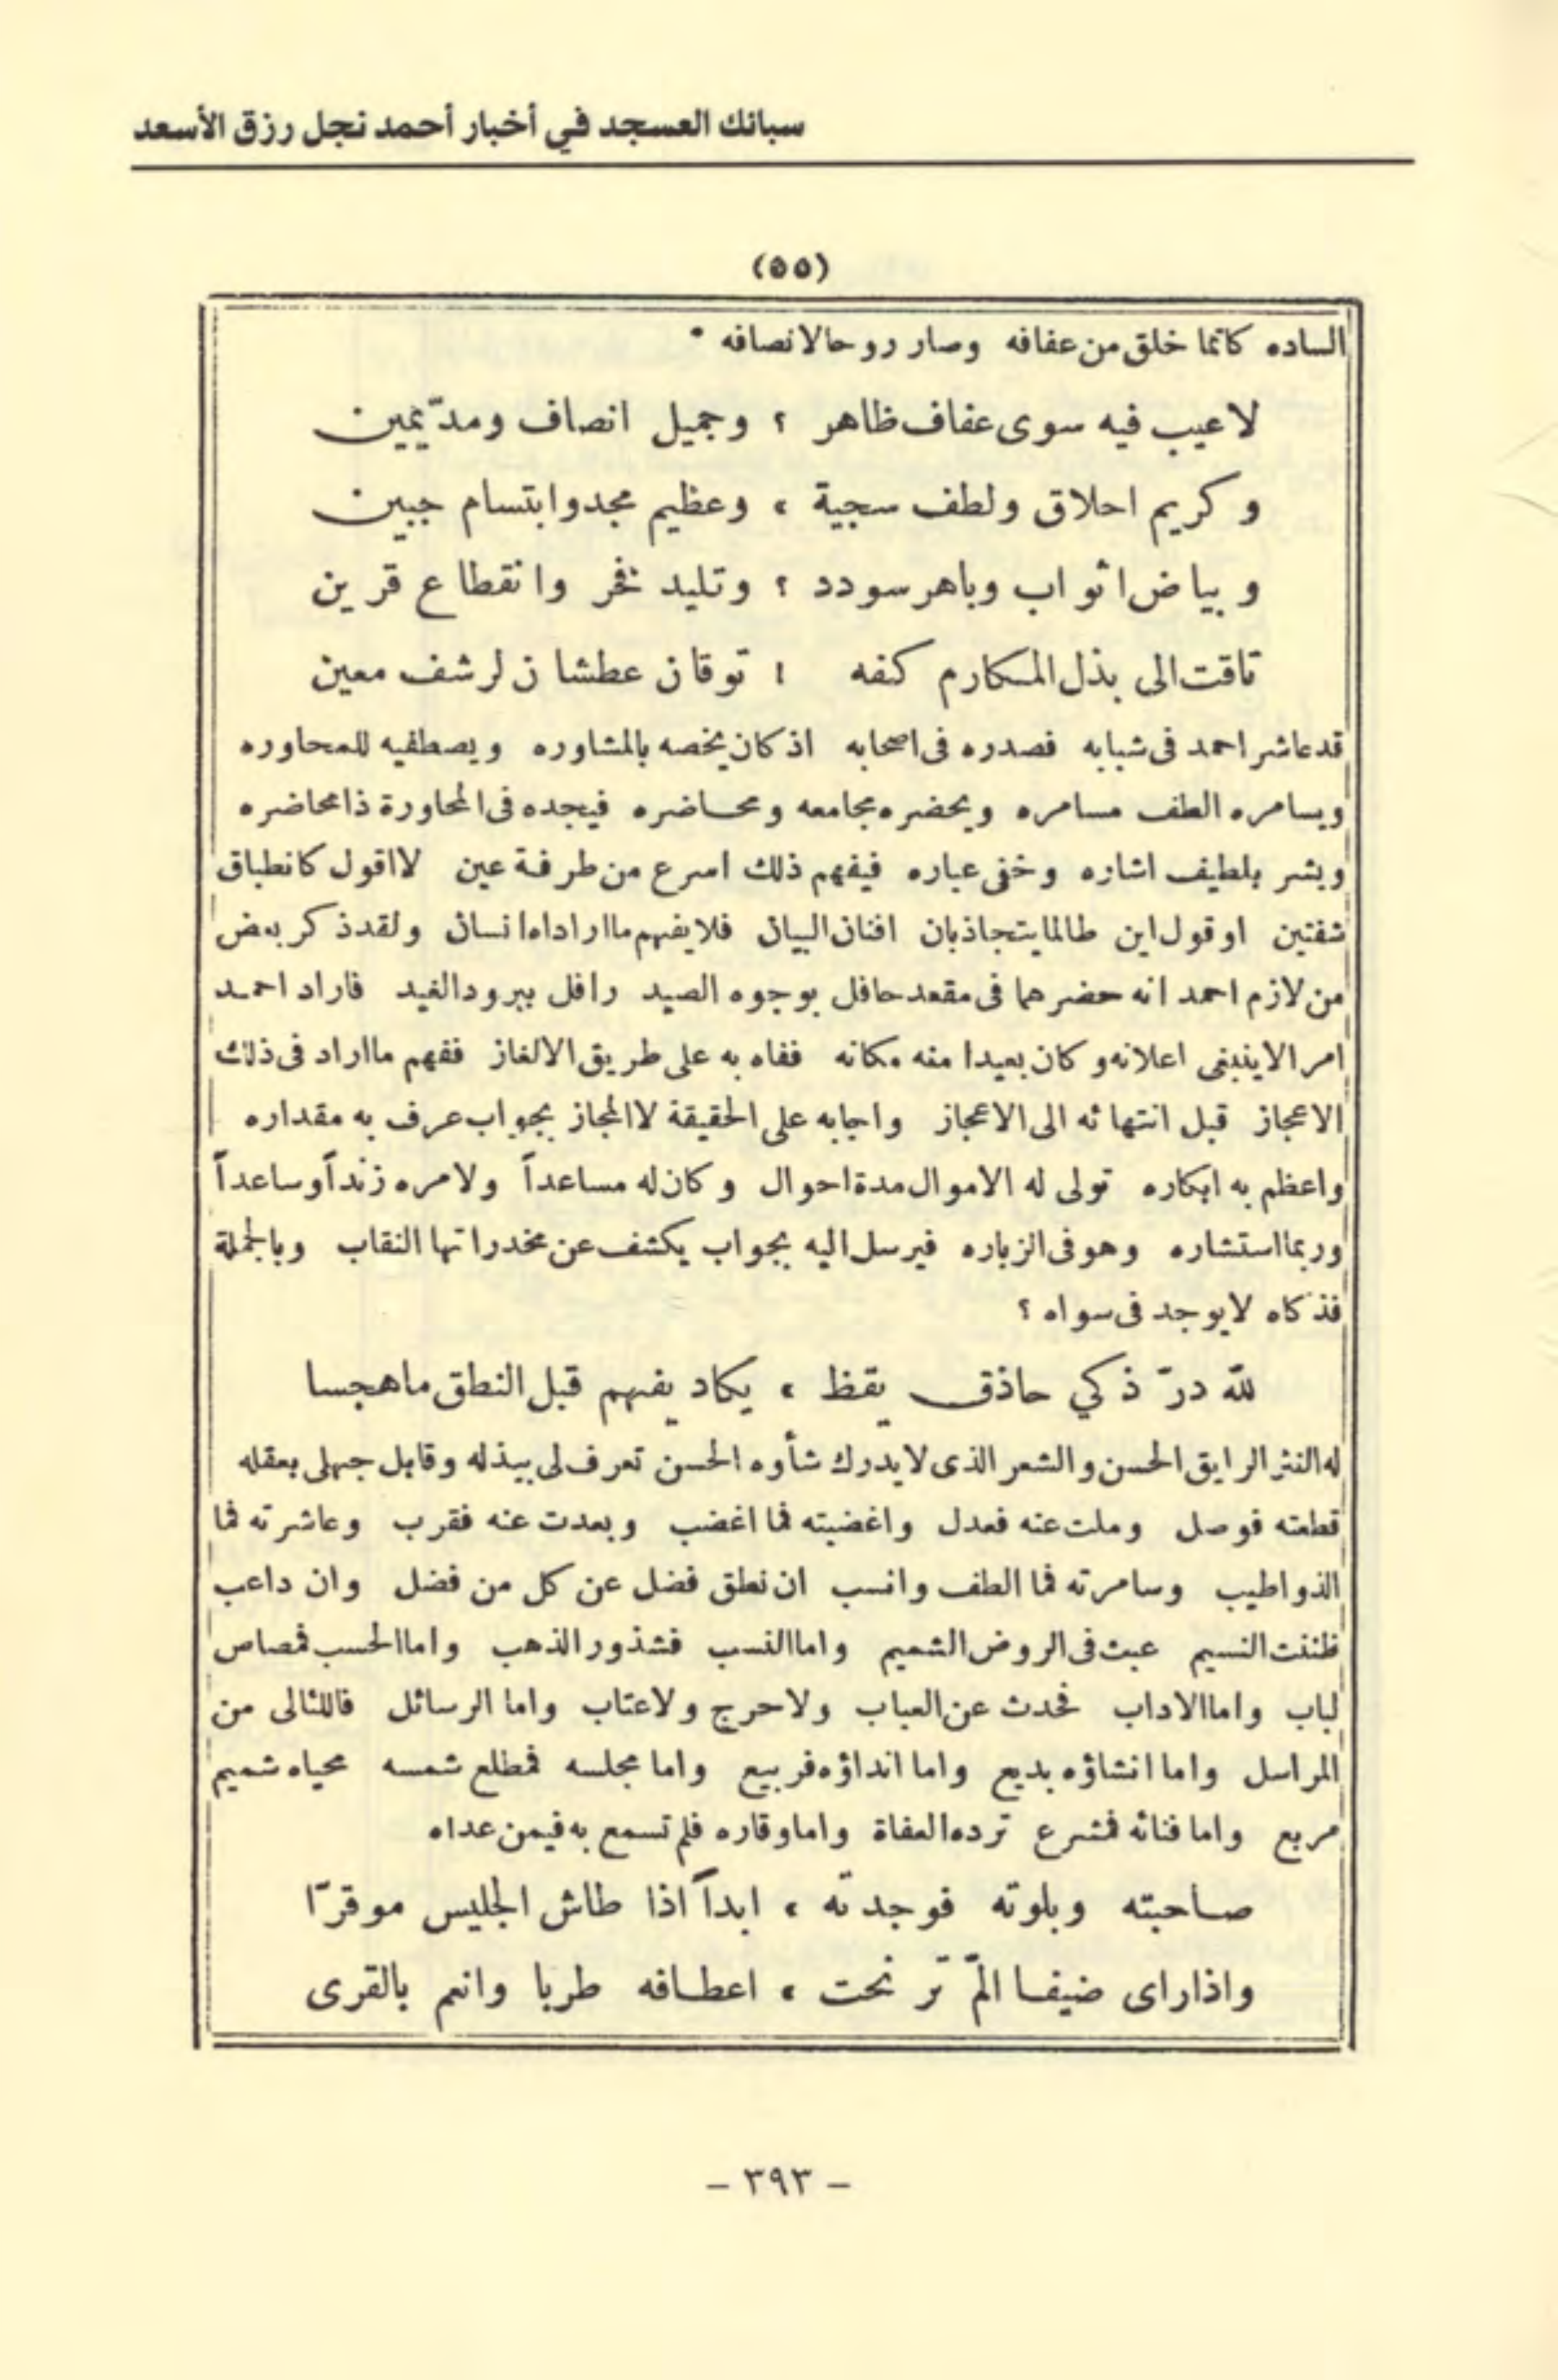 سبائك العسجد في أخبار أحمد نجل رزق الأسعد
(٥٥)
الساده كانما خلق من عفافه وصار روحا لانصافه *
لاعيب فيه سوى عفاف ظاهر ؟ وجميل انصاف ومدّ يمين
وكريم احلاق ولطف سجية ، وعظيم مجد وابتسام جبين
وبياض اثواب وباهر سودد ؟ وتليد فخر وانقطاع قرين
تاقت الى بذل المكارم كفه ؛ توقان عطشان لرشف معين
قد عاشر احمد فى شبابه فصدره فى اصحابه اذ كان يخصه بالمشاوره ويصطفيه للمحاوره
ويسامره الطف مسامره ويحضره مجامعه ومحاضره فيجده فى المحاورة ذا محاضره
ويشر بلطيف اشاره وخفى عباره فيفهم ذلك اسرع من طرفة عين لا اقول كانطباق
شفتين او قول اين طالما يتجاذبان افنان البيان فلا يفهم ما اراداه انسان ولقد ذكر بعض
من لازم احمد انه حضرهما فى مقعد حافل بوجوه الصيد رافل ببرود الغيد فاراد احمد
امر الاينبغى اعلانه وكان بعيدا منه مكانه ففاه به على طريق الالغاز ففهم ما اراد فى ذلك
الاعجاز قبل انتهائه الى الاعجاز واجابه على الحقيقة لا المجاز بجواب عرف به مقداره
واعظم به ابكاره تولى له الاموال مدة احوال وكان له مساعداً ولامره زنداً وساعداً
وربما استشاره وهو فى الزباره فيرسل اليه بجواب يكشف عن مخدراتها النقاب وبالجملة
فذكاه لا يوجد فى سواه ؟
للّه درّ ذكي حاذق يقظ ، يكاد يفهم قبل النطق ما هجسا
له النثر الرايق الحسن والشعر الذى لا يدرك شأوه الحسن تعرف لى ببذله وقابل جهلى بعقله
قطعته فوصل وملت عنه فعدل واغضبته فما اغضب وبعدت عنه فقرب وعاشرته فما
الذ واطيب وسامرته فما الطف وانسب ان نطق فضل عن كل من فضل وان داعب
ظننت النسيم عبث فى الروض الشميم واما النسب فشذور الذهب واما الحسب فمصاص
لباب واما الاداب فحدث عن العباب ولا حرج ولا عتاب واما الرسائل فاللئالى من
المراسل واما انشاؤه بديع واما انداؤه فربيع واما مجلسه فمطلع شمسه محياه شميم
مربع واما فنائه فمشرع ترده العفاة واما وقاره فلم تسمع به فيمن عداه
صاحبته وبلوته فوجدته ، ابداً اذا طاش الجليس موقرّا
واذا راى ضيفا المّ ترنحت ، اعطافه طربا وانعم بالقرى
– ٣٩٣ –